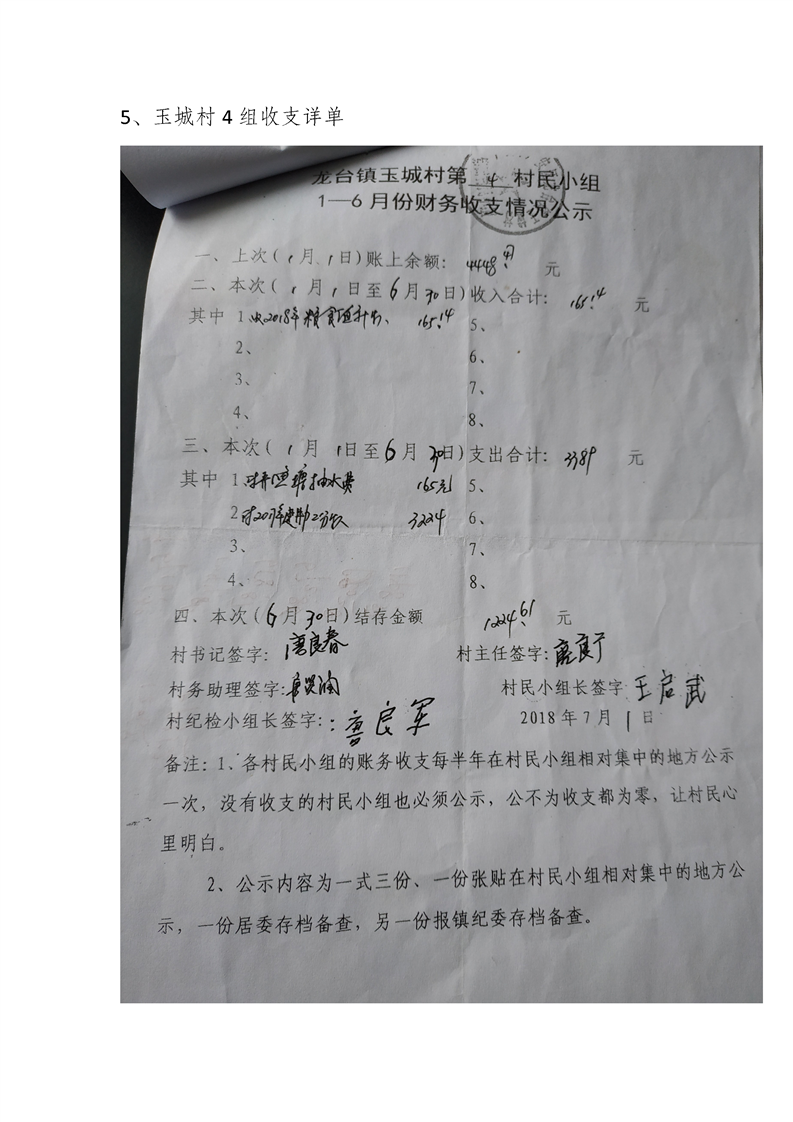 5、玉城村 4 组收支详单
龙台镇玉城村第 4 村民小组
1—6 月份财务收支情况公示
一、上次(1月1日)账上余额：4448.47 元
二、本次(1月1日至6月30日)收入合计：165.14 元
其中 1 收2018年粮食直补 165.14 5、
2、 6、
3、 7、
4、 8、
三、本次(1月1日至6月30日)支出合计：3389 元
其中 1 抽水费 165元 5、
2 3224 6、
3、 7、
4、 8、
四、本次(6月30日)结存金额 1224.61 元
村书记签字：唐良春 村主任签字：
村务助理签字： 村民小组长签字 王启武
村纪检小组长签字：：唐良军 2018年7月1日
备注：1、各村民小组的账务收支每半年在村民小组相对集中的地方公示
一次，没有收支的村民小组也必须公示，公不为收支都为零，让村民心
里明白。
2、公示内容为一式三份、一份张贴在村民小组相对集中的地方公
示，一份居委存档备查，另一份报镇纪委存档备查。